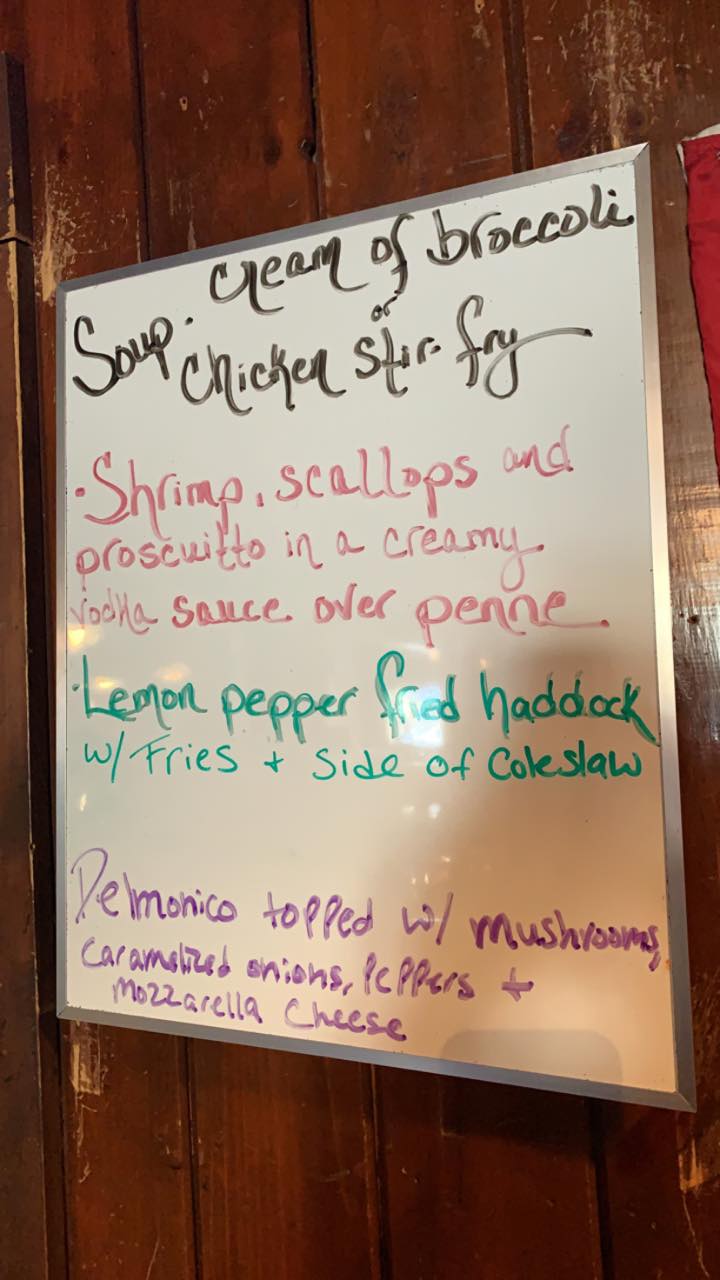 Soup. cream of broccoli
or
chicken stir-fry
·Shrimp, scallops and
proscuitto in a creamy
vodka sauce over penne
·Lemon pepper fried haddock
w/ Fries + side of Coleslaw
Delmonico topped w/ mushrooms,
Caramelized onions, Peppers +
Mozzarella Cheese